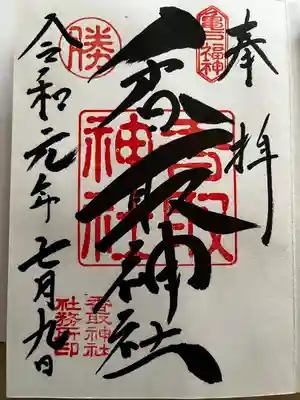 奉拝
亀戸福神
香取神社
香取神社
勝
令和元年七月九日
香取神社
社務所印